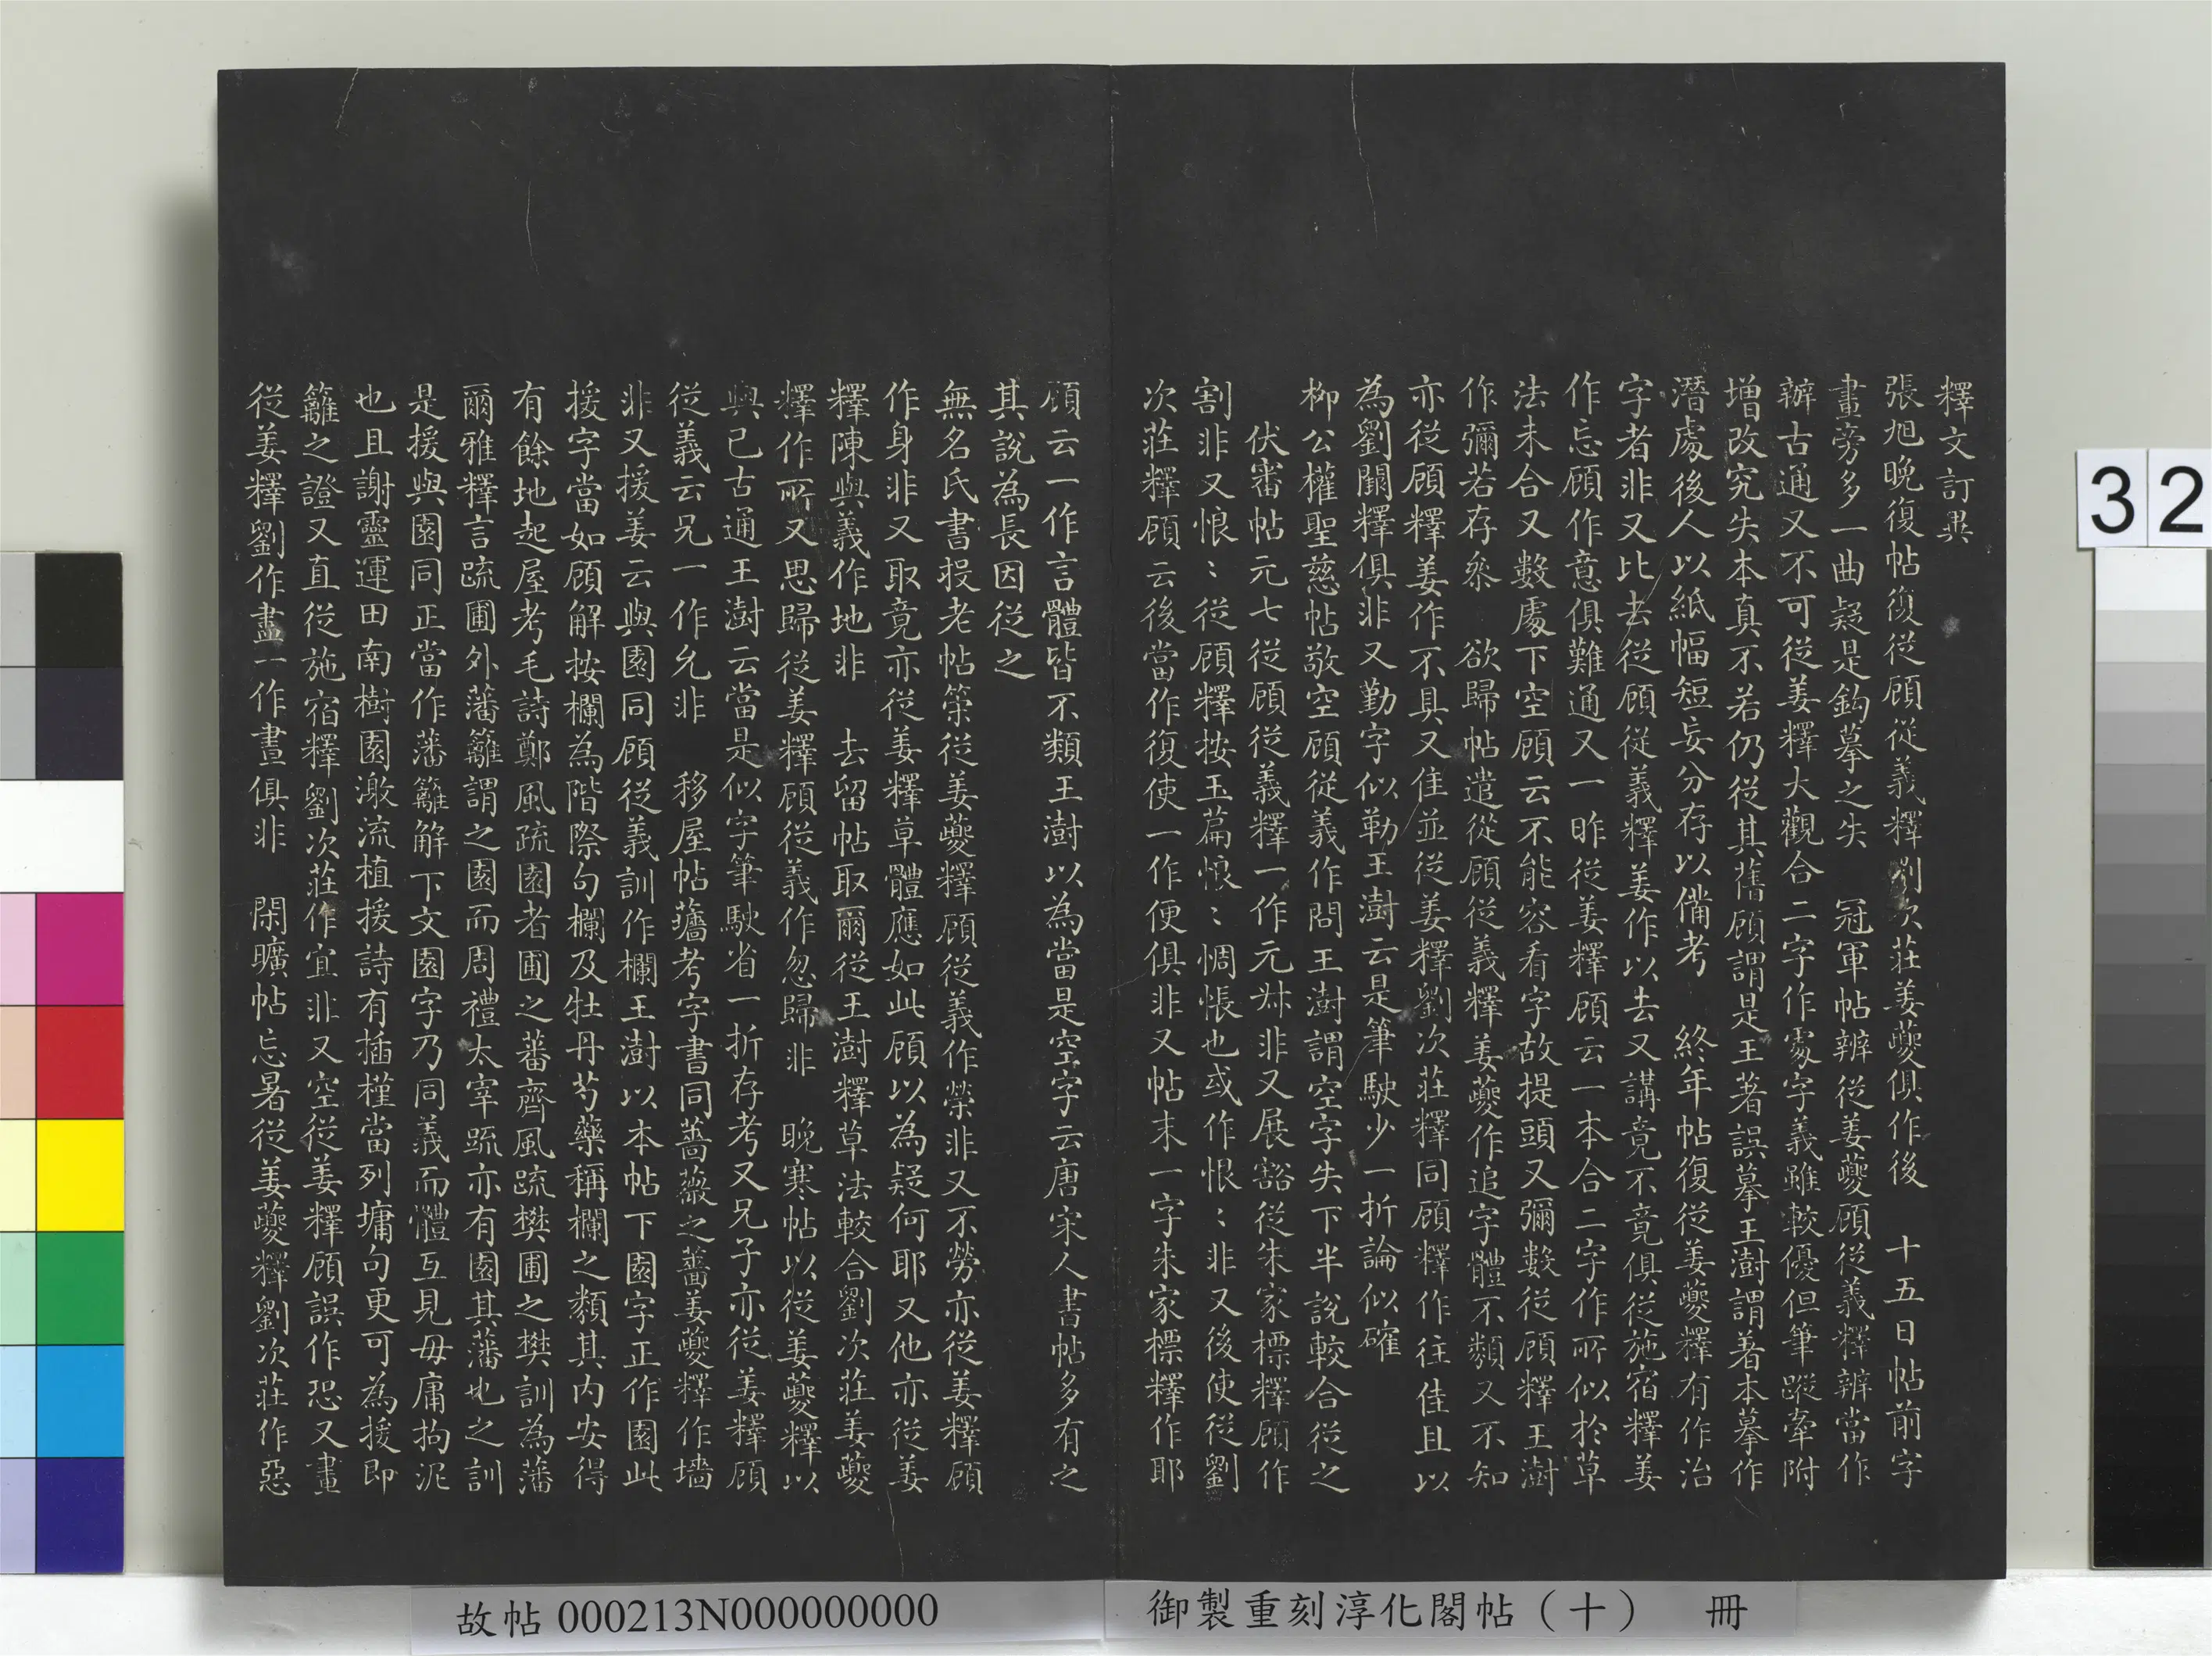 釋文訂異
張旭晚復帖復從顧從義釋劉次莊姜夔俱作後　十五日帖前字
畫旁多一曲疑是鈎摹之失　冠軍帖辨從姜夔顧從義釋辨當作
辦古通又不可從姜釋大觀合二字作處字義雖較優但筆蹤牽附
增改究失本真不若仍從其舊顧謂是王著誤摹王澍謂著本摹作
潛處後人以紙幅短妄分存以備考　終年帖復從姜夔釋有作治
字者非又比去從顧從義釋姜作以去又講竟不竟俱從施宿釋姜
作忘顧作意俱難通又一昨從姜釋顧云一本合二字作所似於草
法未合又數處下空顧云不能容看字故提頭又彌數從顧釋王澍
作彌若存叅　欲歸帖遣從顧從義釋姜夔作追字體不類又不知
亦從顧釋姜作不具又隹並從姜釋劉次莊釋同顧釋作往佳且以
為劉關釋俱非又勤字似勒王澍云是筆駛少一折論似確
柳公權聖慈帖敬空顧從義作問王澍謂空字失下半說較合從之
伏審帖元七從顧從義釋一作元㪷非又展豁從朱家標釋顧作
割非又悢〻從顧釋按玉篇悢〻惆悵也或作恨〻非又後使從劉
次莊釋顧云後當作復使一作便俱非又帖末一字朱家標釋作耶
顧云一作言體皆不類王澍以為當是空字云唐宋人書帖多有之
其說為長因從之
無名氏書投老帖策從姜夔釋顧從義作榮非又不勞亦從姜釋顧
作身非又取竟亦從姜釋草體應如此顧以為疑何耶又他亦從姜
釋陳與義作地非　去留帖取爾從王澍釋草法較合劉次莊姜夔
釋作所又思歸從姜釋顧從義作忽歸非　晚寒帖以從姜夔釋以
與已古通王澍云當是似字筆駛省一折存考又兄子亦從姜釋顧
從義云兄一作允非　移屋帖蘠考字書同薔薇之薔姜夔釋作墻
非又援姜云與園同顧從義訓作欄王澍以本帖下園字正作園此
援字當如顧解按欄為階際句欄及牡丹芍藥稱欄之類其內安得
有餘地起屋考毛詩鄭風疏園者圃之蕃齊風疏樊圃之樊訓為藩
爾雅釋言疏圃外藩籬謂之園而周禮太宰疏亦有園其藩也之訓
是援與園同正當作藩籬解下文園字乃同義而體互見毋庸拘泥
也且謝靈運田南樹園激流植援詩有插槿當列墉句更可為援即
籬之證又直從施宿釋劉次莊作宜非又空從姜釋顧誤作恐又畫
從姜釋劉作盡一作晝俱非　閑曠帖忘暑從姜夔釋劉次莊作惡
32
故帖000213N000000000
御製重刻淳化閣帖（十）　冊